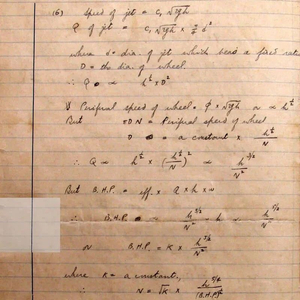 (6) Speed of jet = C₁ √2gh
Q of jet = C₁ √2gh × π/4 d²
where d = dia. of jet which bears a fixed ratio
D = the dia. of wheel.
∴ Q ∝ h^½ × D²
Peripheral speed of wheel = φ × √2gh ∝ h^½
But πDN = Peripheral speed of wheel
D = a constant × h^½/N
∴ Q ∝ h^½ × (h^½/N)² ∝ h^3/2/N²
But B.H.P. = eff. × Q × h × w
∴ B.H.P. h^3/2/N² · h h^5/2/N²
or B.H.P. = K × h^5/2/N²
where K = a constant,
∴ N = √K × h^5/4/(B.H.P.)^½